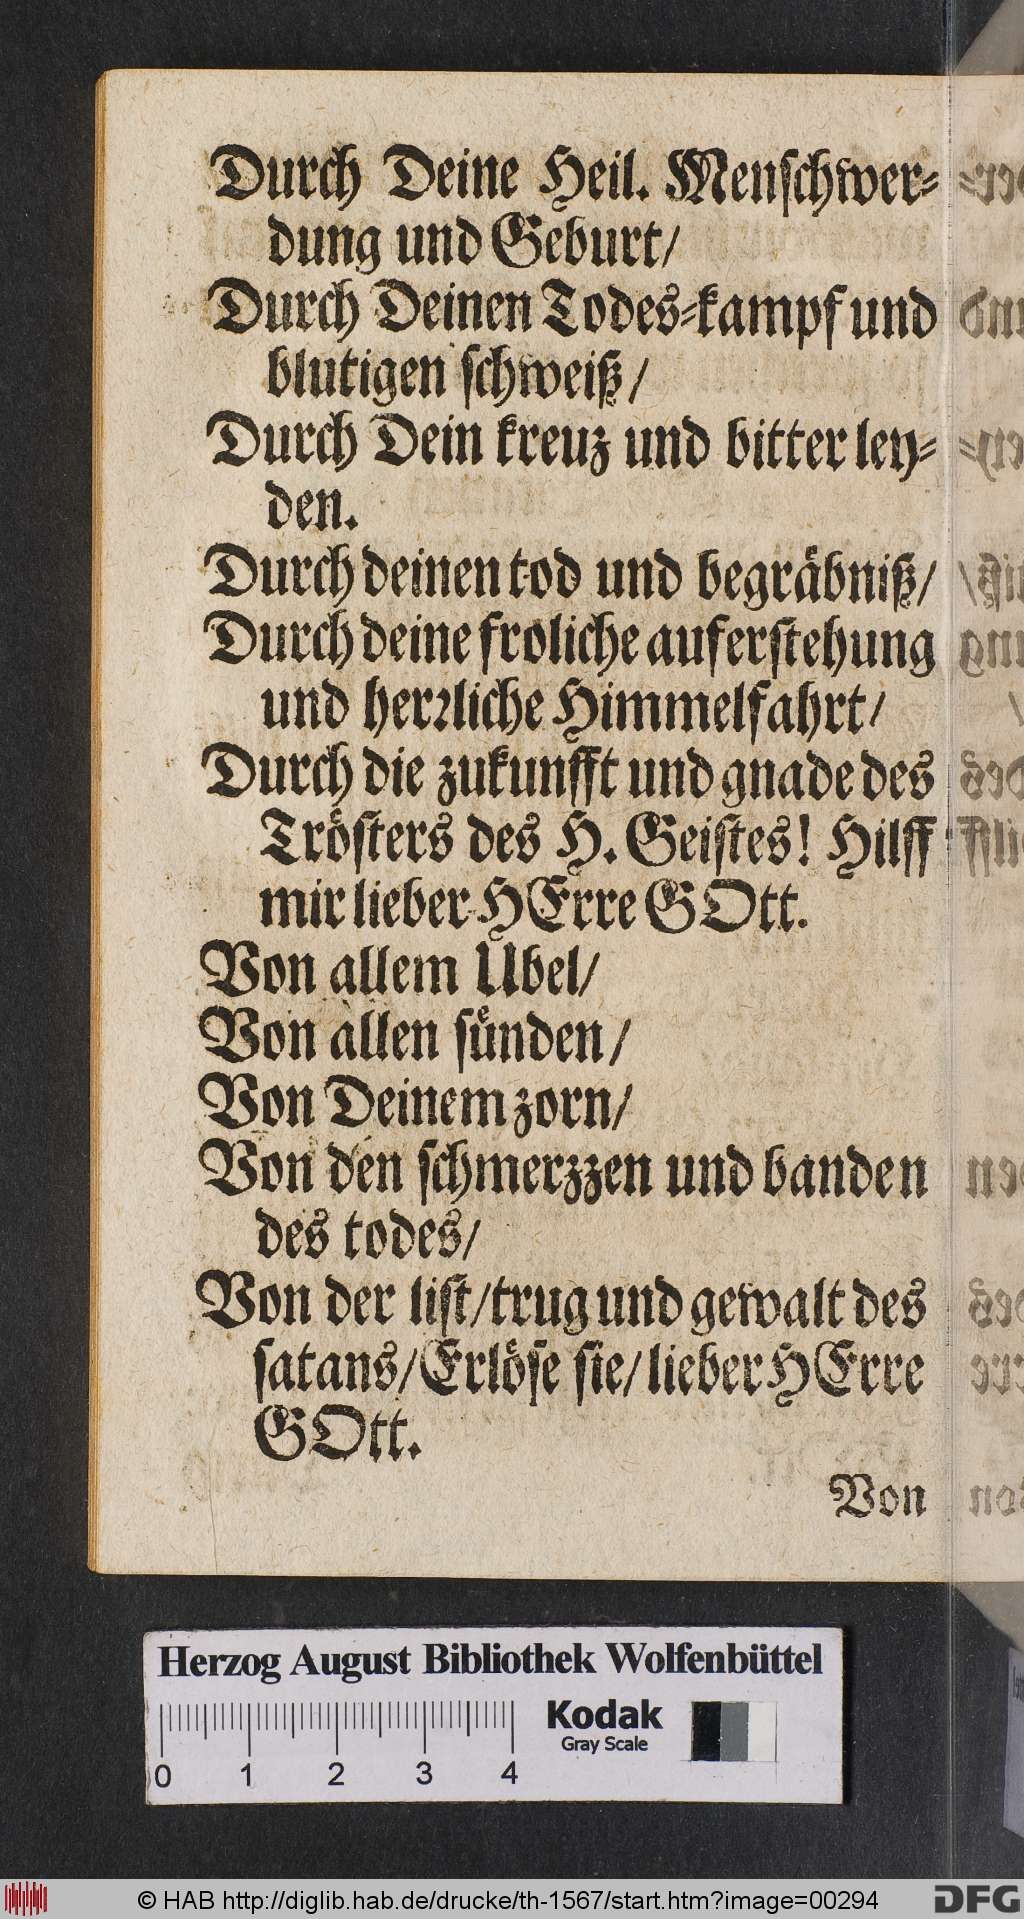 Durch Deine Heil. Menschwer-
dung und Geburt/
Durch Deinen Todes-kampf und
blutigen schweiß/
Durch Dein kreuz und bitter ley-
den.
Durch deinen tod und begräbniß/
Durch deine froliche auferstehung
und herrliche Himmelfahrt/
Durch die zukunfft und gnade des
Trösters des H. Geistes! Hilff
mir lieber HErre GOtt.
Von allem Ubel/
Von allen sünden/
Von Deinem zorn/
Von den schmerzzen und banden
des todes/
Von der list/trug und gewalt des
satans/Erlöse sie/lieber HErre
GOtt.
Von
Herzog August Bibliothek Wolfenbüttel
Kodak
Gray Scale
0 1 2 3 4
© HAB http://diglib.hab.de/drucke/th-1567/start.htm?image=00294
DFG